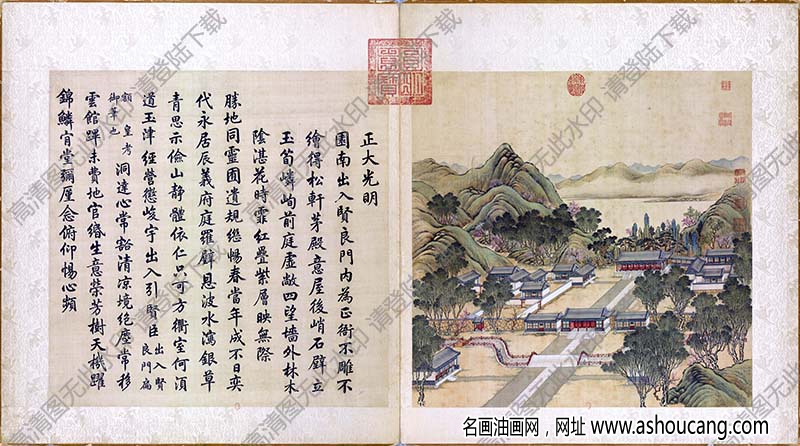 正大光明
園南出入賢良門內為正衙不雕不
繪得松軒茅殿意屋後峭石壁立
玉筍嶙峋前庭虛敞四望墻外林木
陰湛花時霏紅疊紫層映無際
勝地同靈囿遺規繼暢春當年成不日奕
代永居辰義府庭羅壁恩波水瀉銀草
青思示儉山靜體依仁只可方衢室何須
道玉津經營懲峻宇出入引賢臣出入賢良門扁
額皇考御筆也洞達心常豁清涼境絕塵常移
雲館蹕未費地官緡生意榮芳樹天機躍
錦鱗肯堂彌厪念俯仰惕心頻
高清图无此水印 请登陆下载
名画油画网，网址 www.ashoucang.com